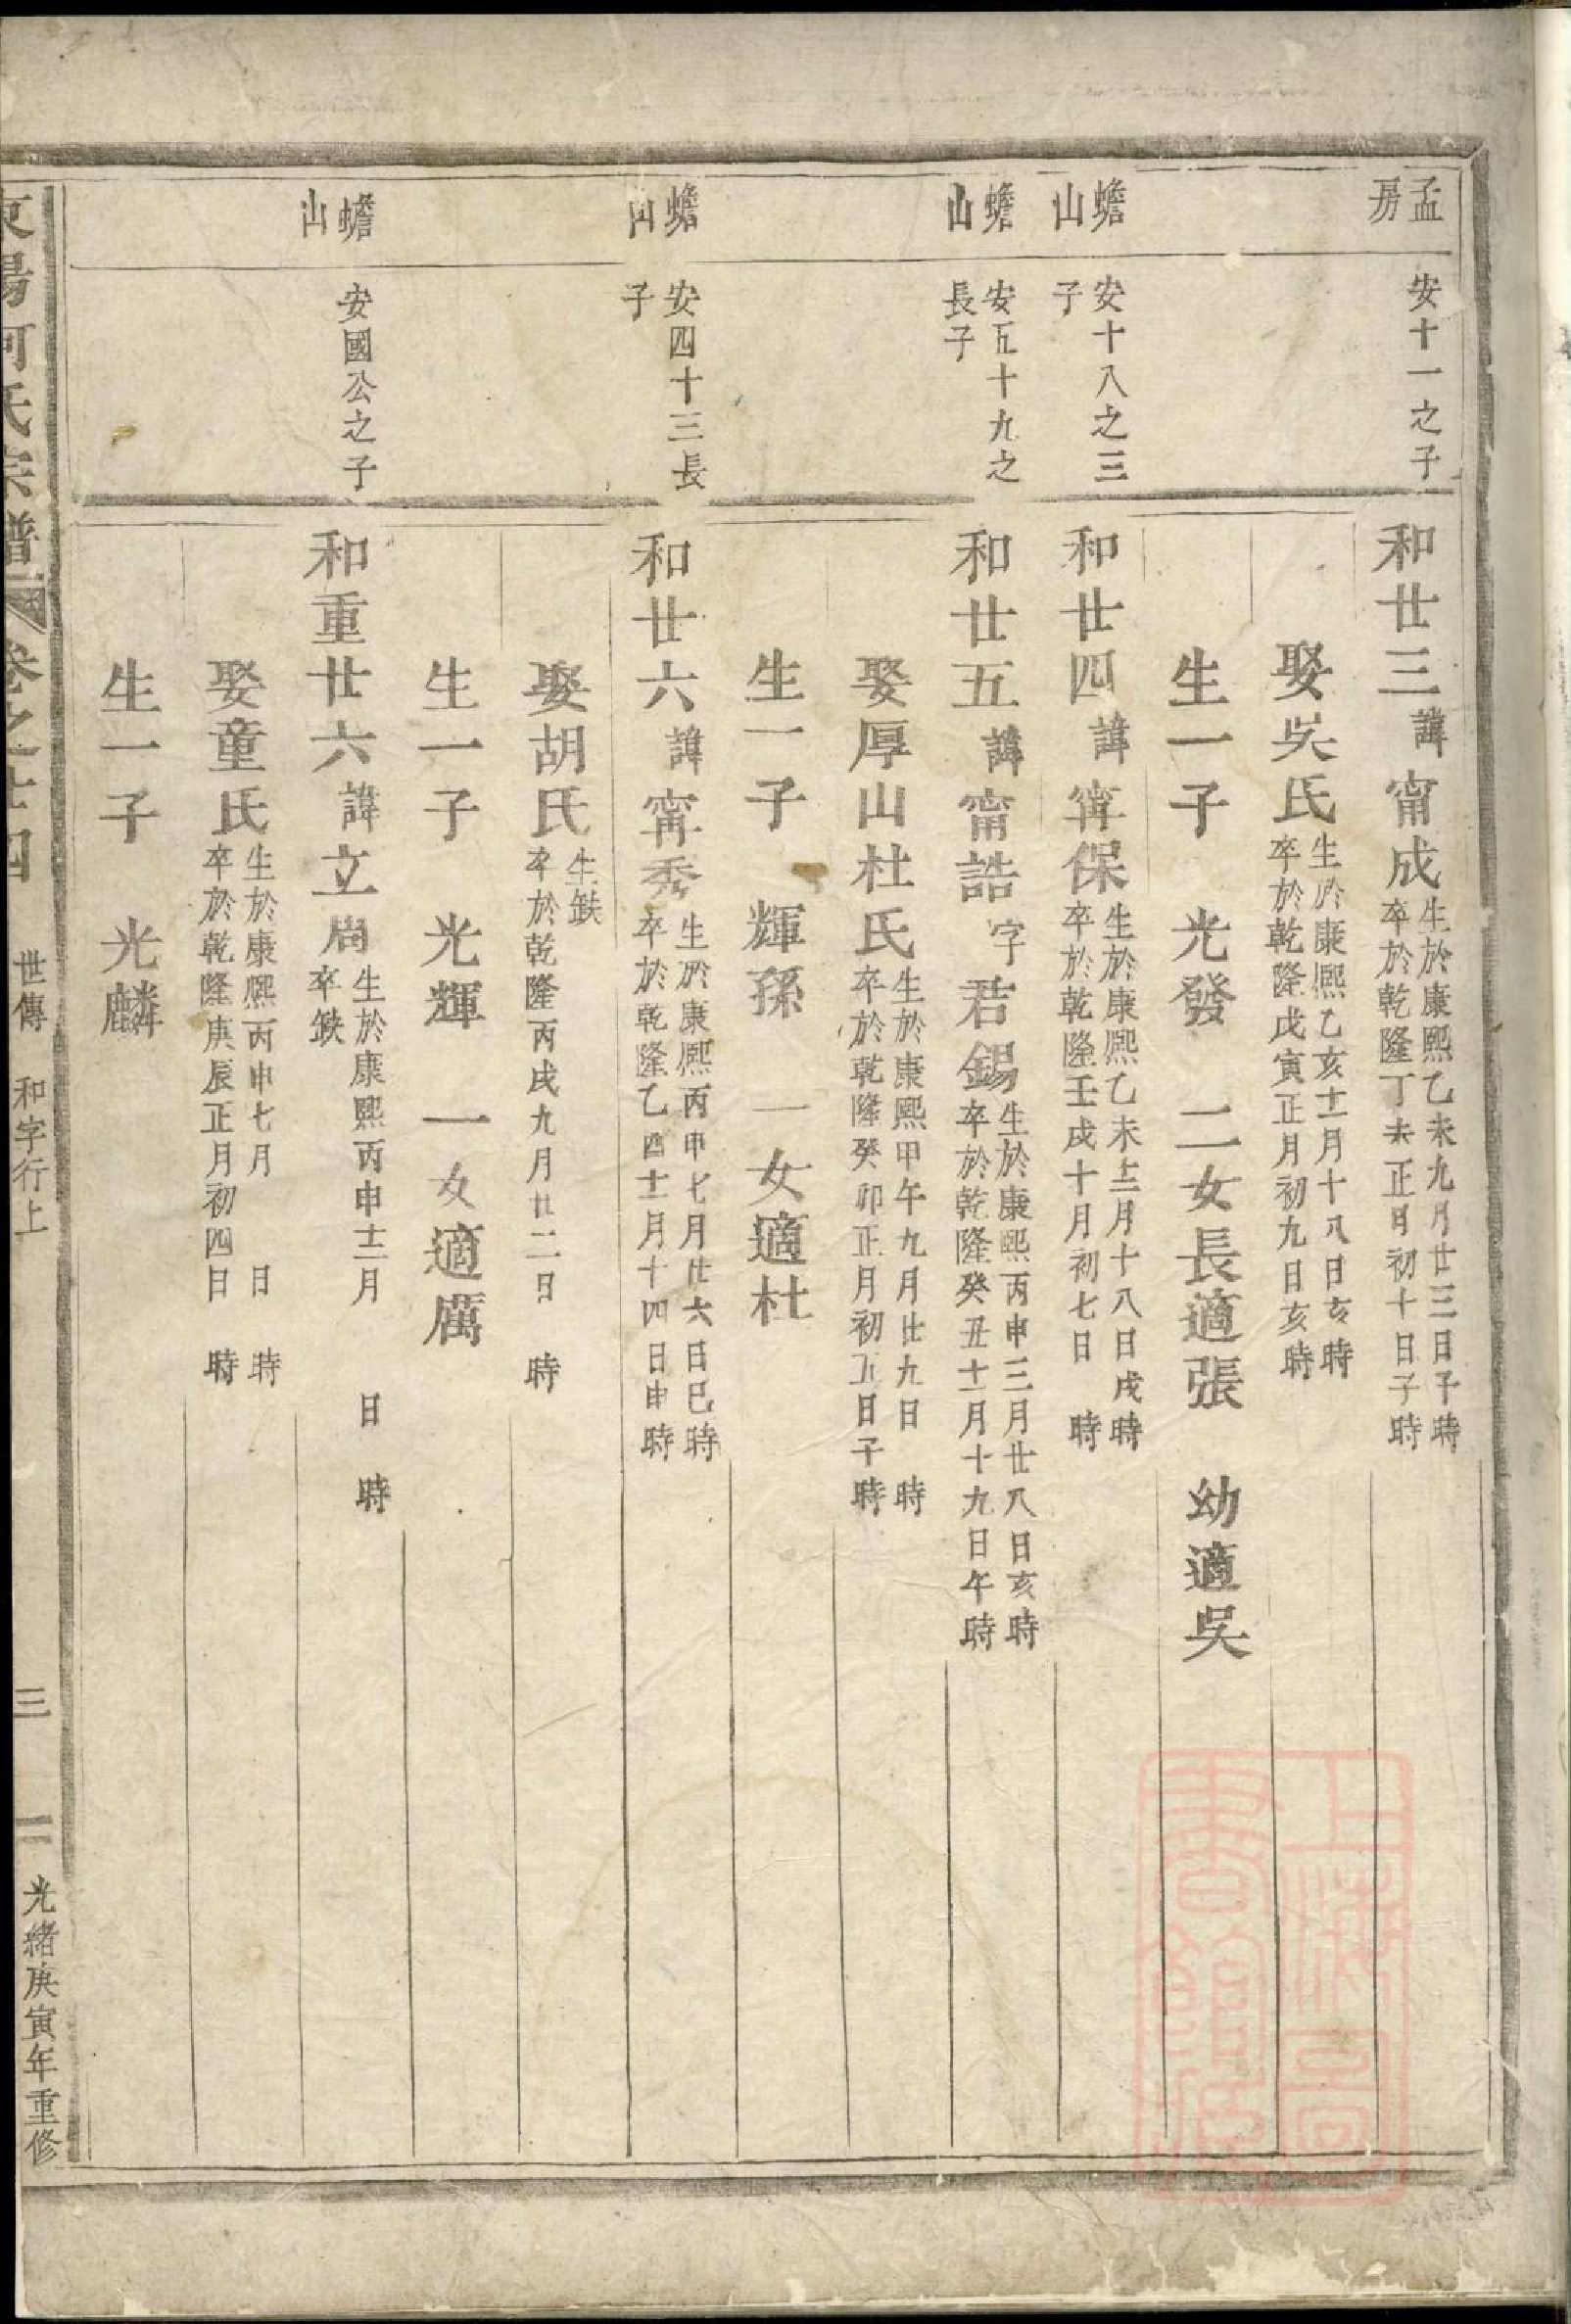 孟房
安十一之子
和廿三諱甯成
生於康熙乙未九月廿三日子時
卒於乾隆丁未正月初十日子時
娶吳氏
生於康熙乙亥十一月十八日亥時
卒於乾隆戊寅正月初九日亥時
生一子 光發 二女長適張 幼適吳
蟾山
安十八之三子
和廿四諱甯保
生於康熙乙未十二月十八日戌時
卒於乾隆壬戌十月初七日 時
蟾山
安五十九之長子
和廿五諱甯誥字君錫
生於康熙丙申三月廿八日亥時
卒於乾隆癸丑十一月十九日午時
娶厚山杜氏
生於康熙甲午九月廿九日 時
卒於乾隆癸卯正月初五日子時
生一子 輝孫 一女適杜
蟾山
安四十三長子
和廿六諱甯秀
生於康熙丙申七月廿六日巳時
卒於乾隆乙酉十一月十四日申時
娶胡氏
生缺
卒於乾隆丙戌九月廿二日 時
生一子 光輝 一女適厲
蟾山
安國公之子
和重廿六諱立
生於康熙丙申十二月 日 時
卒缺
娶童氏
生於康熙丙申七月 日 時
卒於乾隆庚辰正月初四日 時
生一子 光麟
東陽何氏宗譜 卷之十四 世傳 和字行上 三 光緒庚寅年重修
上海圖書館藏